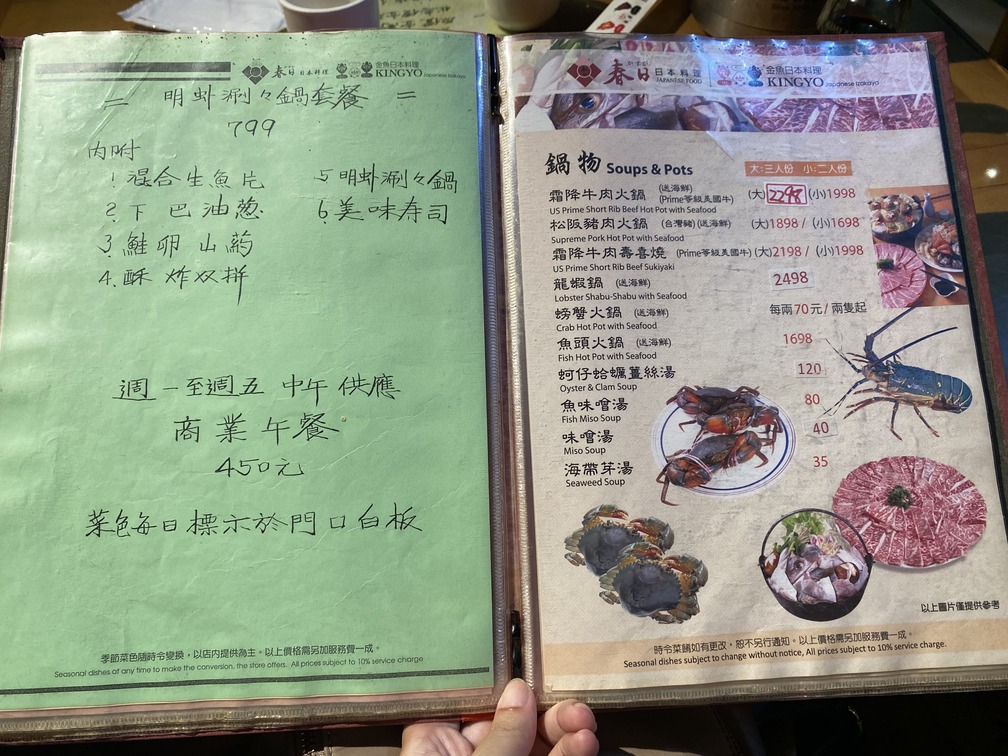 春日 日本料理 金魚日本料理 KINGYO Japanese Izakaya
= 明蚪涮々鍋套餐 =
799
内附
1. 混合生魚片
2. 下巴油葱
3. 鮭卵山葯
4. 酥炸双拼
5 明蚪涮々鍋
6. 美味寿司
週一至週五中午供應
商業午餐
450元
菜色每日標示於門口白板
季節菜色隨時令變換，以店內提供為主。以上價格需另加服務費一成。
Seasonal dishes at any time to make the conversion, the store offers. All prices subject to 10% service charge
春日 日本料理 JAPANESE FOOD 金魚日本料理 KINGYO Japanese Izakaya
鍋物 Soups & Pots 大:三人份 小:二人份
霜降牛肉火鍋 (送海鮮) (Prime等級美國牛) (大) 2298 (小)1998
US Prime Short Rib Beef Hot Pot with Seafood
松阪豬肉火鍋 (台灣豬)(送海鮮) (大)1898 / (小)1698
Supreme Pork Hot Pot with Seafood
霜降牛肉壽喜燒 (Prime等級美國牛) (大)2198 / (小)1998
US Prime Short Rib Beef Sukiyaki
龍蝦鍋 (送海鮮) 2498
Lobster Shabu-Shabu with Seafood
螃蟹火鍋 (送海鮮) 每兩70元 / 兩隻起
Crab Hot Pot with Seafood
魚頭火鍋 (送海鮮) 1698
Fish Hot Pot with Seafood
蚵仔蛤蠣薑絲湯 120
Oyster & Clam Soup
魚味噌湯 80
Fish Miso Soup
味噌湯 40
Miso Soup
海帶芽湯 35
Seaweed Soup
以上圖片僅提供參考
時令菜餚如有更改，恕不另行通知。以上價格需另加服務費一成。
Seasonal dishes subject to change without notice, All prices subject to 10% service charge.